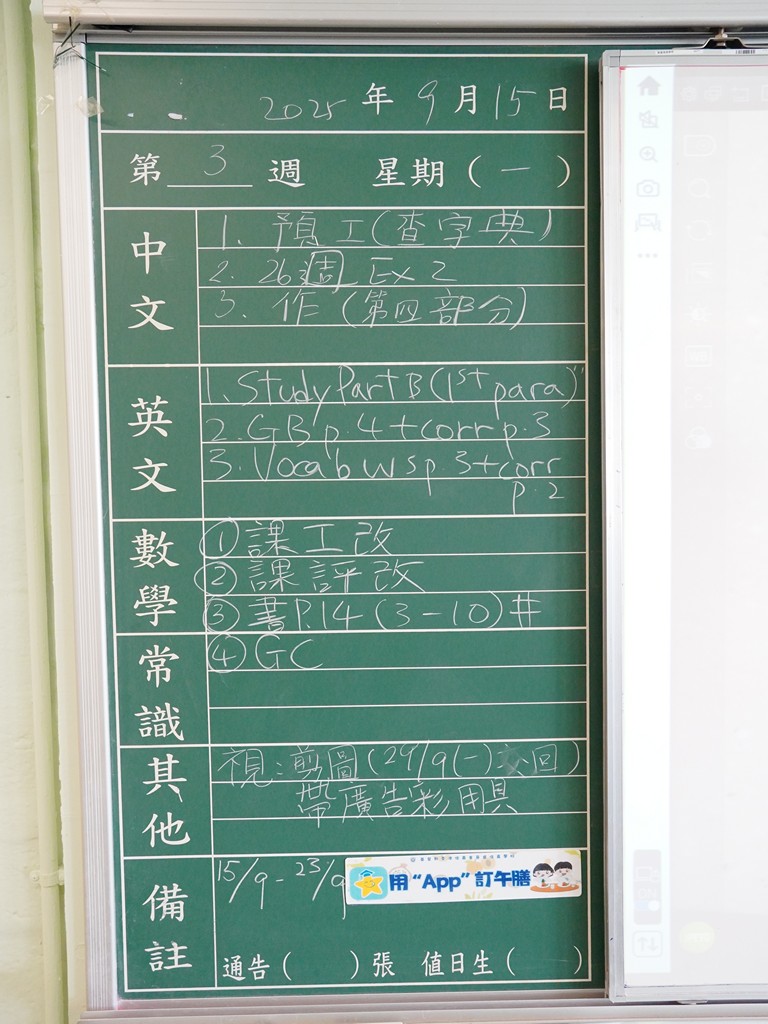 2025 年 9 月 15 日
第 3 週 星期 ( 一 )
中文
1. 預工(查字典)
2. 26週 Ex 2
3. 作 (第四部分)
英文
1. Study Part B (1st para)
2. GB p.4 + corr p.3
3. Vocab ws p.3 + corr
p.2
數學
① 課工改
② 課評改
③ 書P.14 (3-10) #
常識
④ GC
其他
視:剪圖(29/9(一)交回)
帶廣告彩用具
備註
15/9 - 23/9
用 "App" 訂午膳
通告 ( ) 張 值日生 ( )